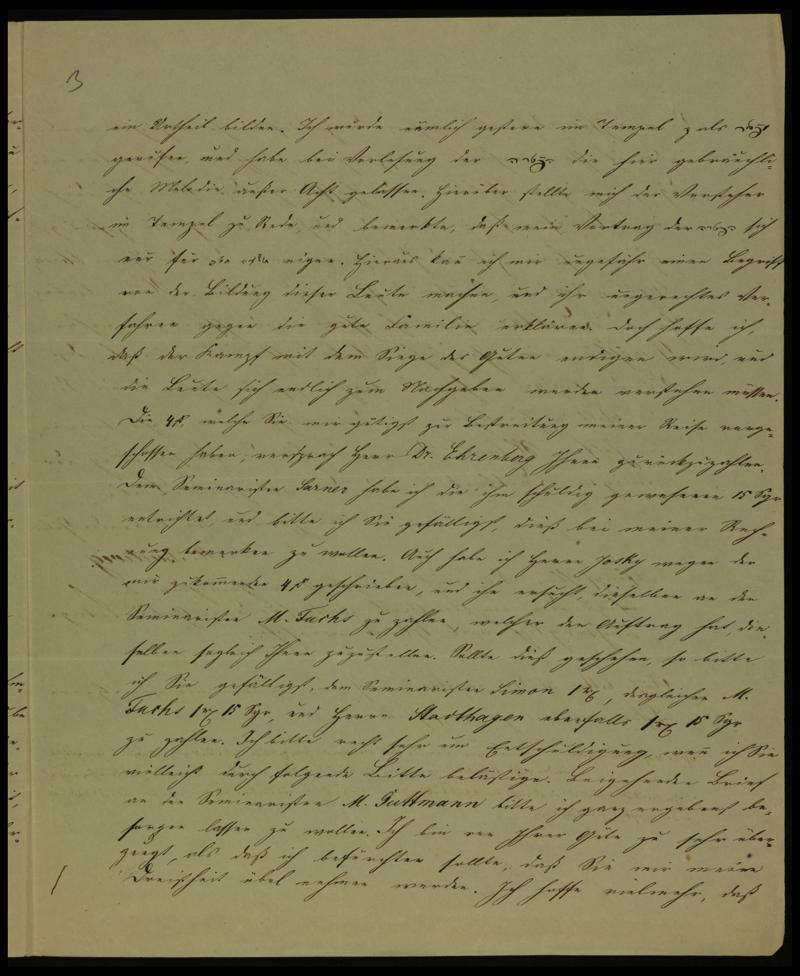 3
ein Urtheil bilden. Ich wurde nämlich gestern im Tempel z als
gerufen, und habe bei Vorlesung der הפטרה die hier gebräuchli-
che Melodie außer Acht gelassen. Hierüber stellte mich der Vorsteher
im Tempel zu Rede, und bemerkte, daß mein Vortrag der הפטרה sich
nur für eigne. Hieraus kan ich mir ungefähr einen Begriff
von der Bildung dieser Leute machen, und ihr ungerechtes Ver-
fahren gegen die gute Familie erklären. Doch hoffe ich,
daß der Kampf mit dem Siege des Guten endigen wird, und
die Leute sich endlich zum Nachgeben werden verstehen müssen.
Die 4 welche Sie mir gütigst zur Bestreitung meiner Reise vorge-
schossen haben, versprach Herr Dr. Ehrenberg Ihnen zurückzuzahlen.
Dem Seminaristen Sarner habe ich die ihm schuldig gewesenen 15 Sgr
entrichtet, und bitte ich Sie gefälligst, dieß bei meiner Rech-
nung bemerken zu wollen. Auch habe ich Herrn Josky wegen der
mir zukomenden 4 geschrieben, und ihn ersucht, dieselben an den
Seminaristen M. Fuchs zu zahlen, welcher den Auftrag hat, die-
selben sogleich Ihnen zuzustellen. Sollte dieß geschehen, so bitte
ich Sie gefälligst, dem Seminaristen Simon 1 , desgleichen M.
Fuchs 1 15 Sgr, und Herrn Stadthagen ebenfalls 1 15 Sgr
zu zahlen. Ich bitte recht sehr um Entschuldigung, wen ich Sie
vielleicht durch folgende Bitte belästige. Beigehenden Brief
an den Seminaristen M. Guttmann bitte ich ganz ergebenst be-
sorgen lassen zu wollen. Ich bin von Ihrer Güte zu sehr über-
zeugt, als daß ich befürchten sollte, daß Sie mir meine
Dreistheit übel nehmen werden. Ich hoffe vielmehr, daß